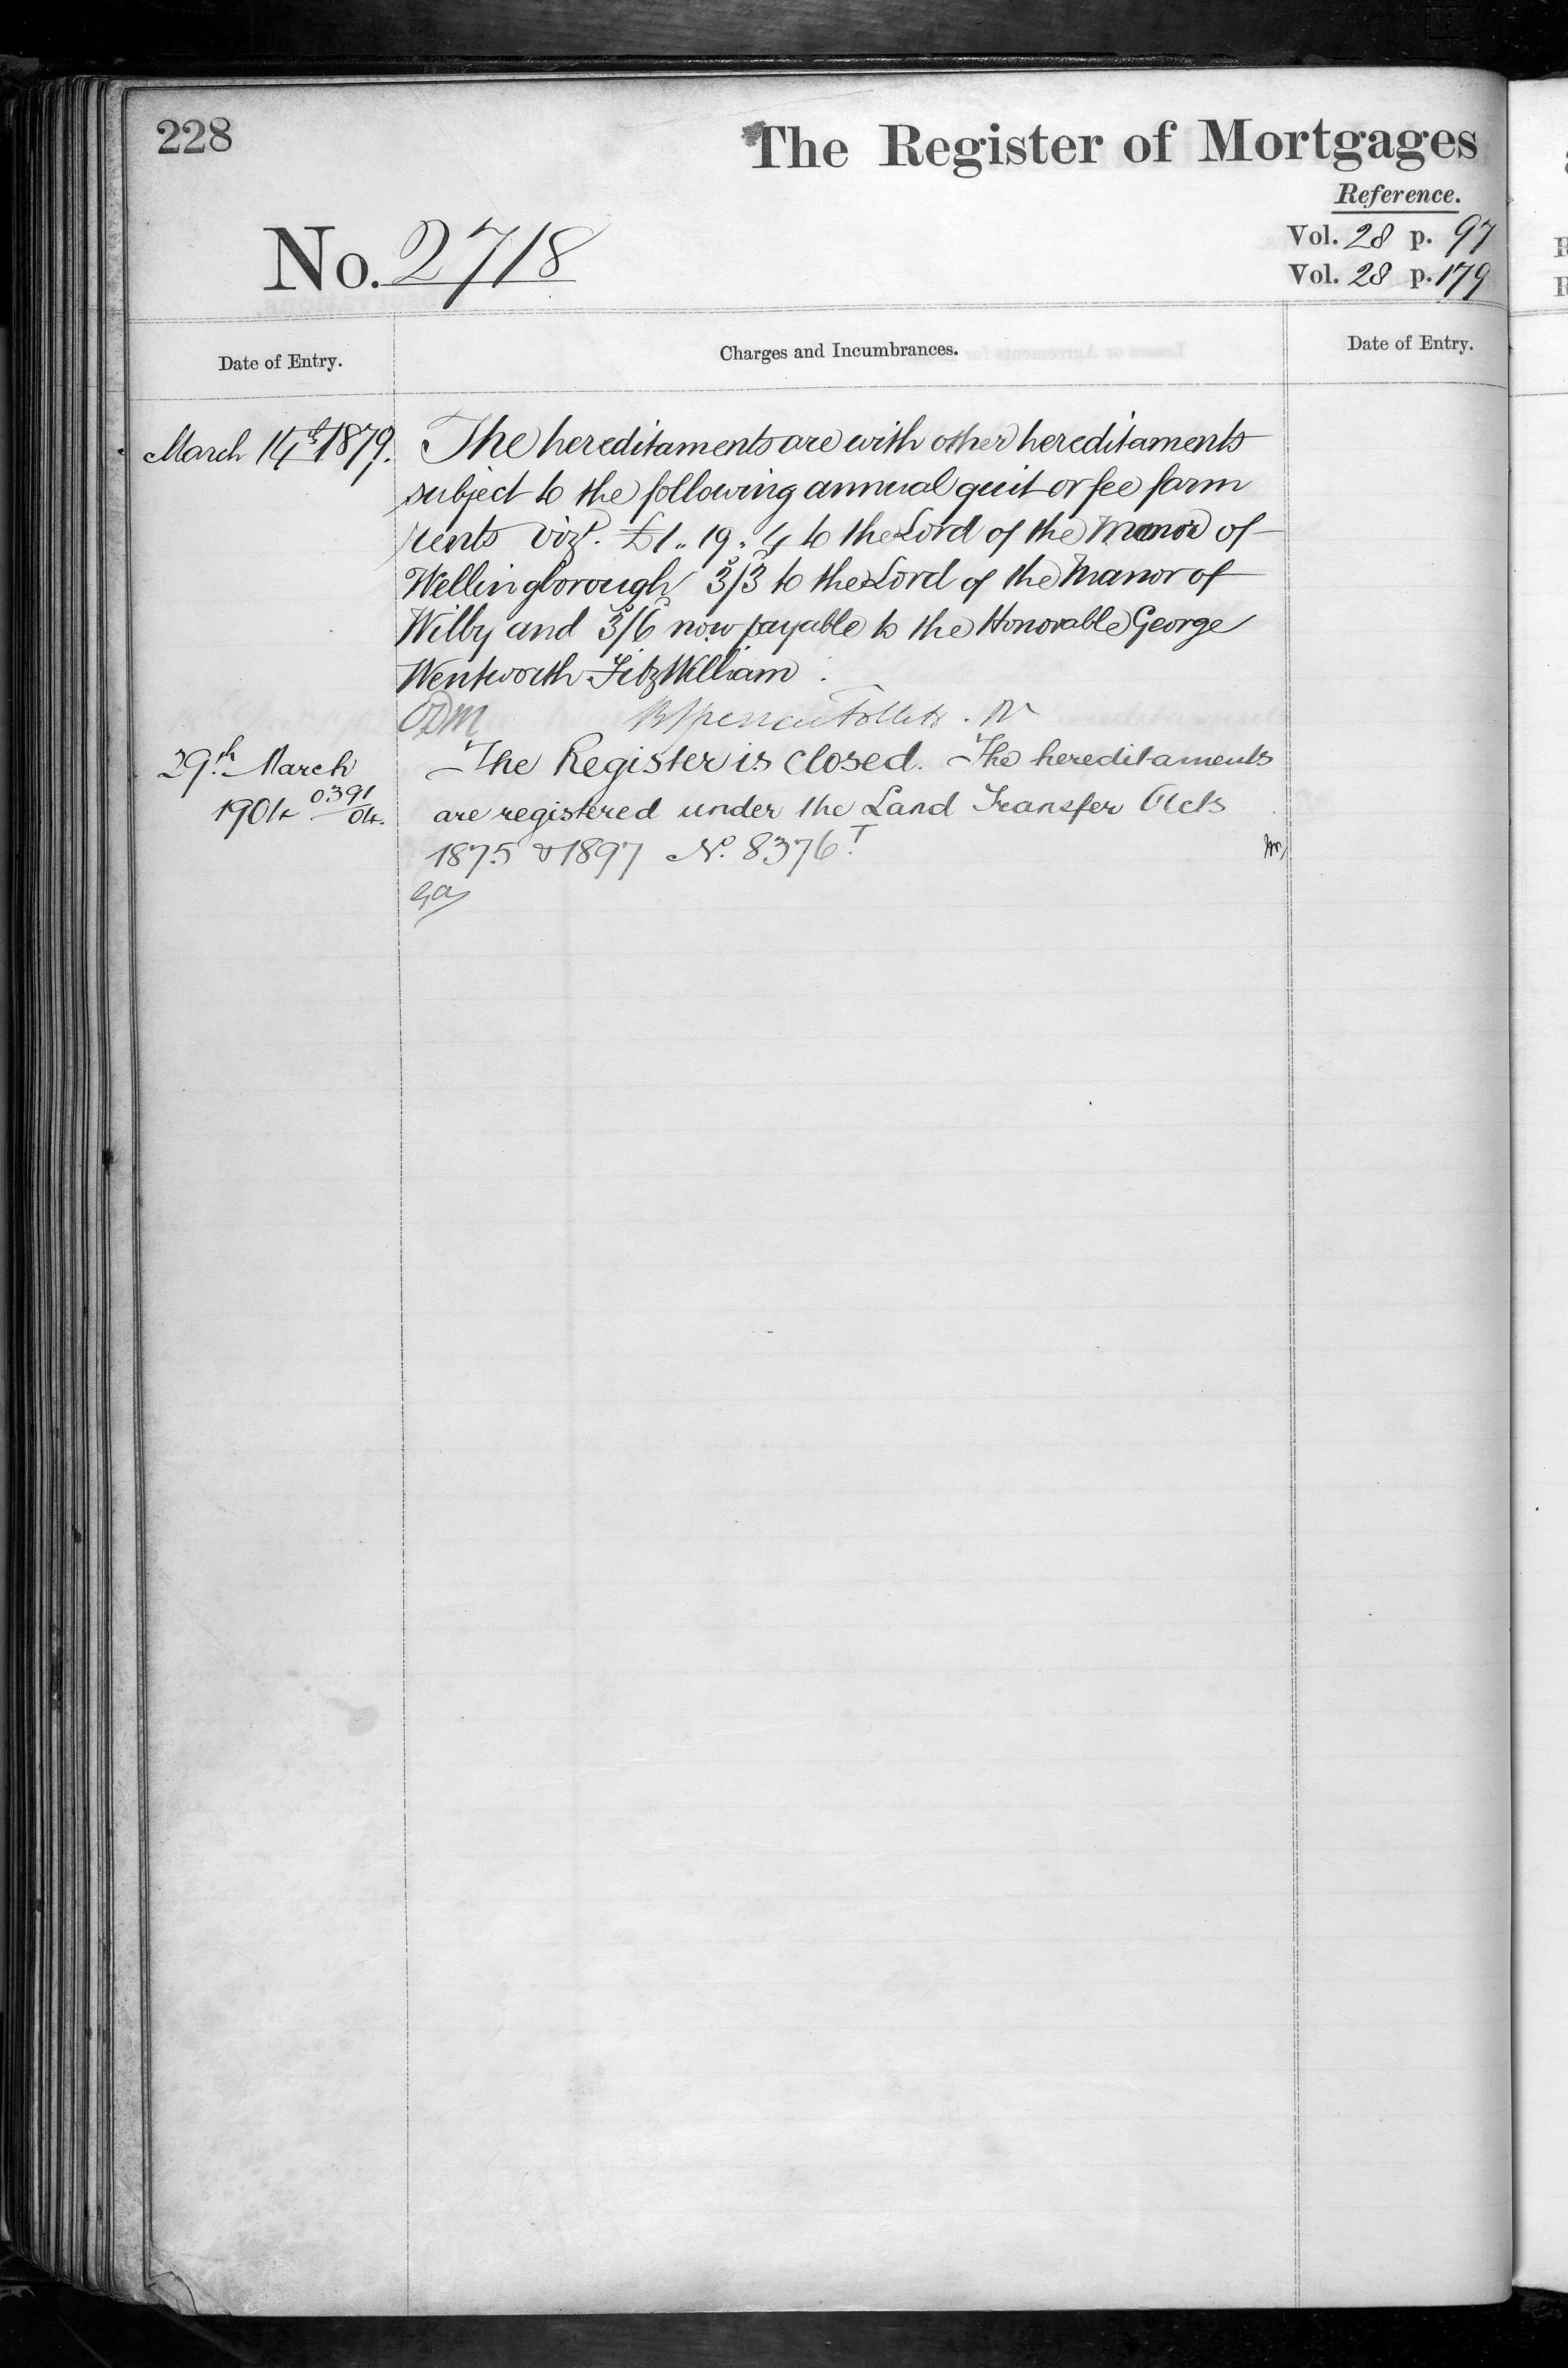 228
The Register of Mortgages
Reference.
No. 2718
Vol. 28 p. 97
Vol. 28 p. 179
Date of Entry.
Charges and Incumbrances.
Date of Entry.
March 14th 1879.
The hereditaments are with other hereditaments
subject to the following annual quit or fee farm
rents vizt. £1„ 19„ 4 to the Lord of the Manor of
Wellingborough 3/3 to the Lord of the Manor of
Wilby and 3/6 now payable to the Honorable George
Wentworth FitzWilliam
29th March
1904 0391/04.
The Register is closed. The hereditaments
are registered under the Land Transfer Acts
1875 & 1897 No. 8376T.